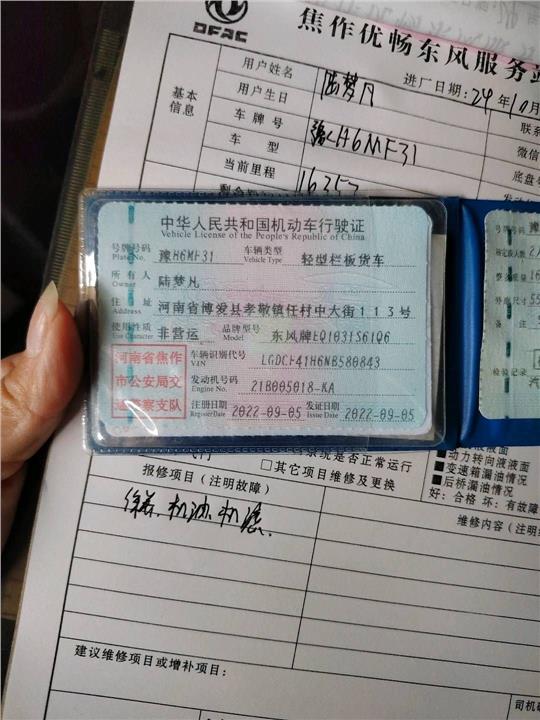 DFAC
焦作优畅东风服务站
基本信息
用户姓名
陆梦凡
进厂日期：24年10月
用户生日
联系
车牌号
豫H6MF31
微信
车 型
底盘号
当前里程
16353
中华人民共和国机动车行驶证
Vehicle License of the People's Republic of China
号牌号码
Plate No.
豫H6MF31
车辆类型
Vehicle Type
轻型栏板货车
所有人
Owner
陆梦凡
住址
Address
河南省博爱县孝敬镇任村中大街113号
使用性质
Use Character
非营运
品牌型号
Model
东风牌EQ1031S61Q6
河南省焦作
市公安局交
通警察支队
车辆识别代号
VIN
LGDCH41H6NB580843
发动机号码
Engine No.
21B005018-KA
注册日期
Register Date
2022-09-05
发证日期
Issue Date
2022-09-05
检验记录
系统是否正常运行
□其它项目维修及更换
■动力转向液液面
■变速箱漏油情况
■后桥漏油情况
好：合格 坏：有故障
报修项目（注明故障）
维修内容（注明
机油.机滤.
建议维修项目或增补项目：
司机